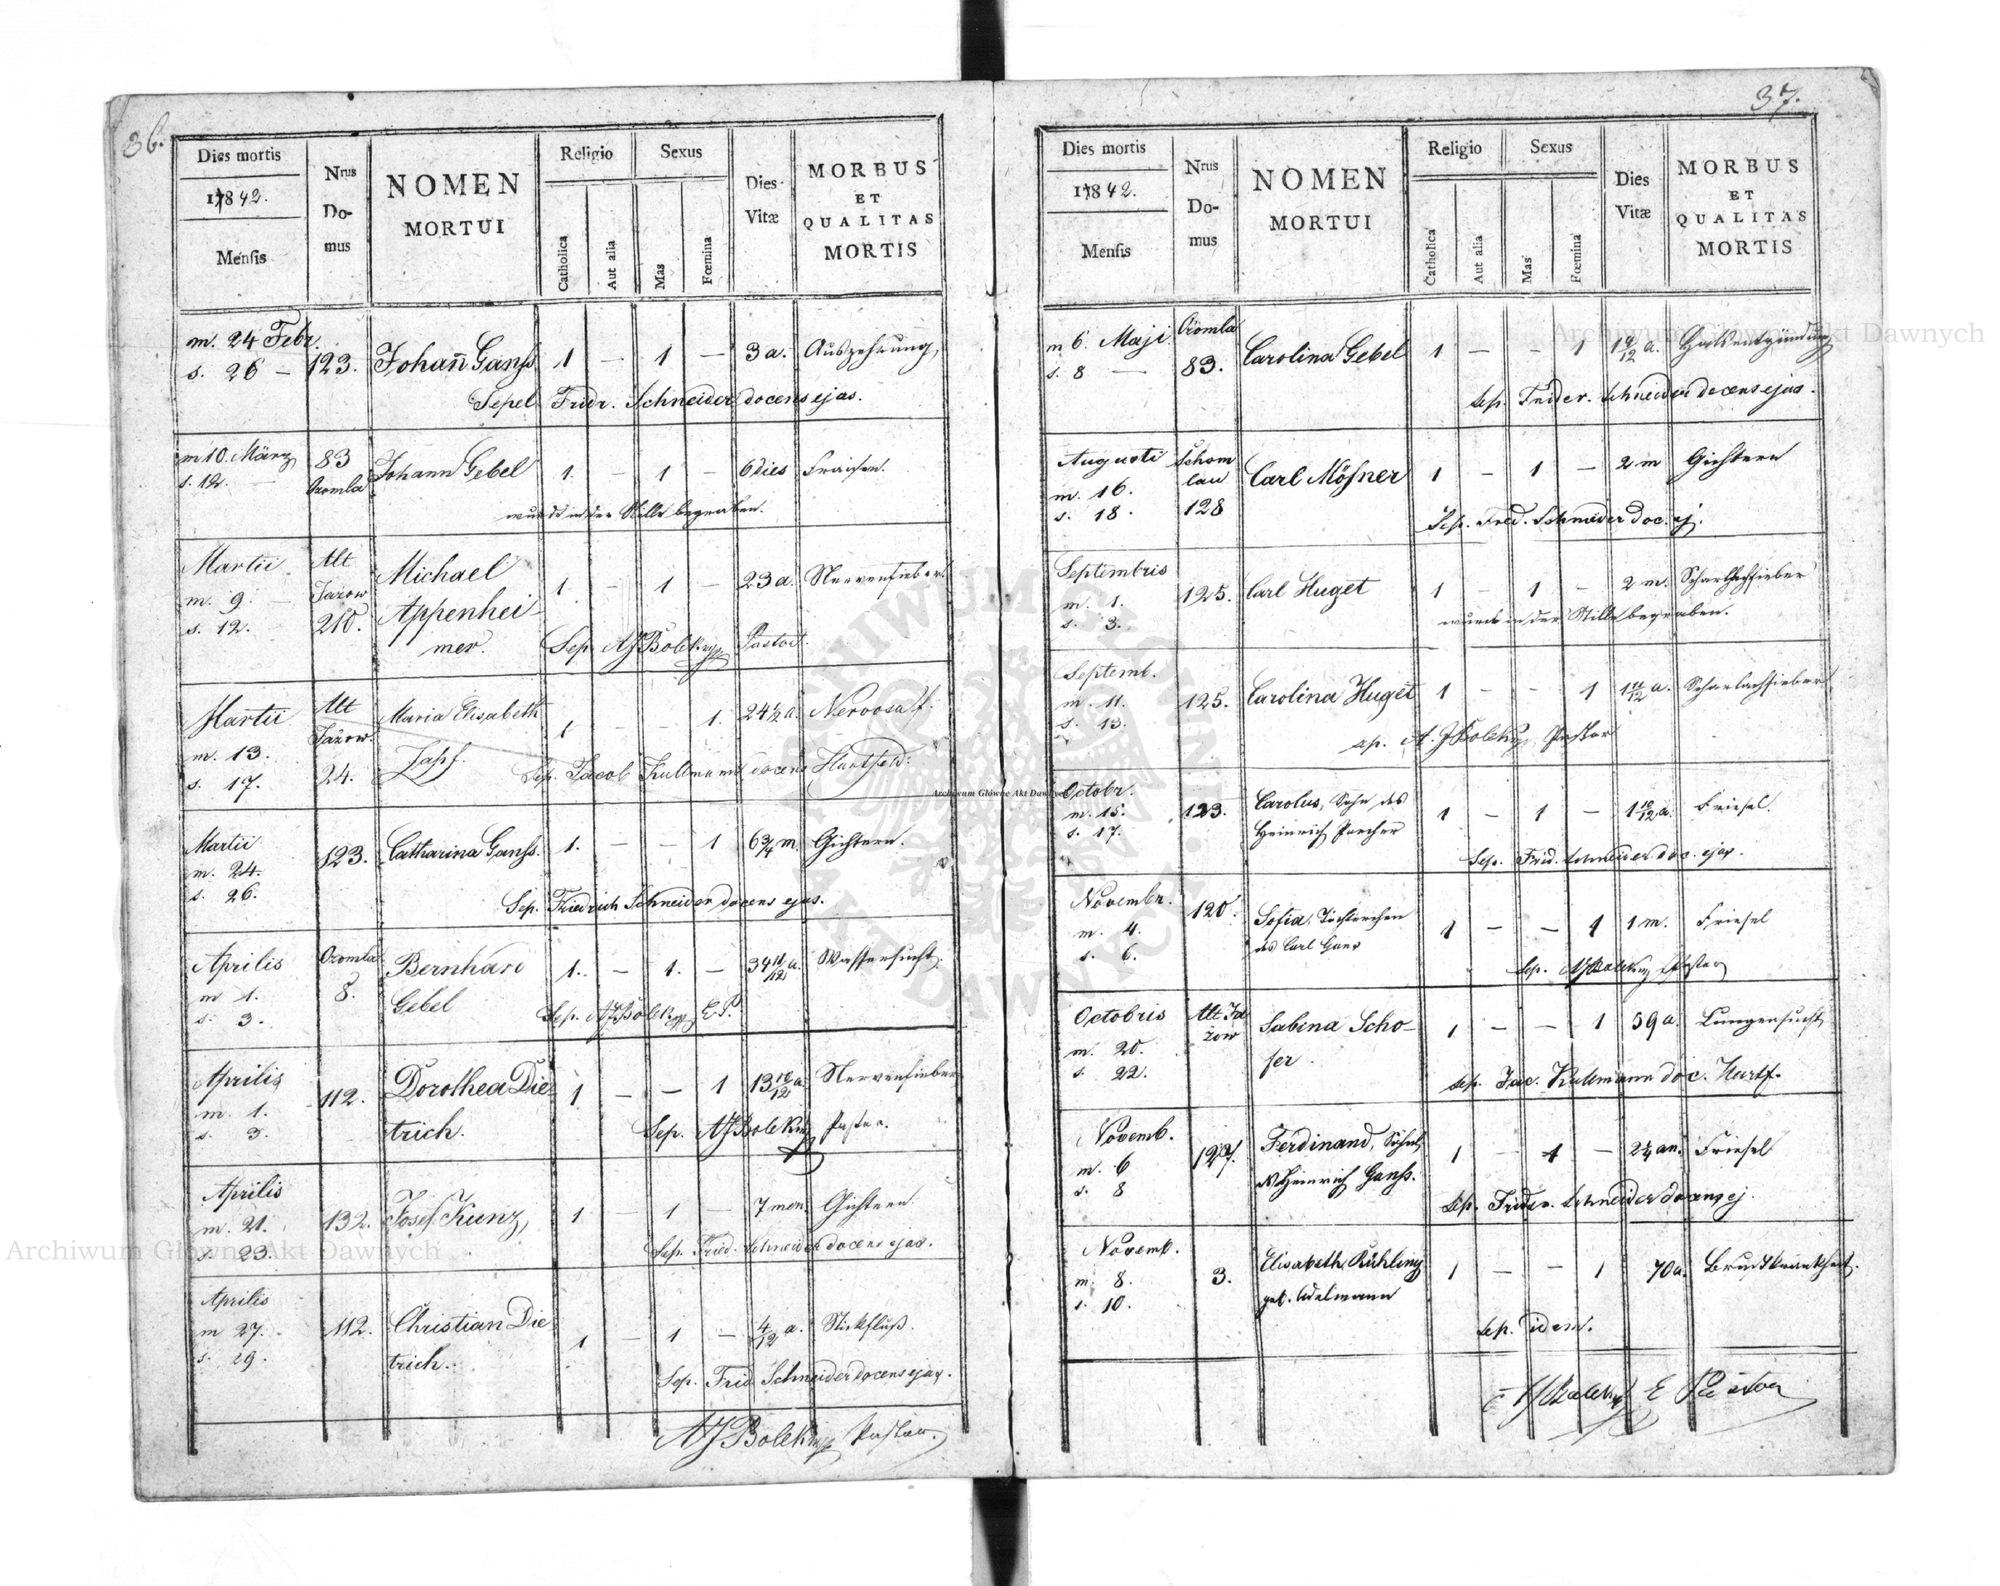 36.
Dies mortis
1842.
Mensis
Nrus Domus
NOMEN MORTUI
Religio
Catholica
Aut alia
Sexus
Mas
Fœmina
Dies Vitæ
MORBUS ET QUALITAS MORTIS
m. 24 Febr. 123. Johañ Ganss 1 — 1 — 3 a. Auszehrung
s. 26 —
Sepel. Fridr. Schneider docens ejas.
m 10. März 83 Johann Gebel 1. — 1 — 6 dies Fraisen.
s. 12. Ozomla
wurde in der Stille begraben.
Martii Alt Michael 1. — 1 — 23 a. Nervenfieber
m. 9. Jazow Appenhei-
s. 12. 210. mer. Sep. AJBolek Pastor.
Martii Alt Maria Elisabeth 1 — — 1. 24 1/2 a. Nervosa f.
m. 13. Jazow.
s. 17. 24. Zapf. Sep. Jacob Kullmann docens Hartfeld.
Martii 123. Catharina Ganss. 1. — — 1 6 3/4 m. Gichtern.
m. 24.
s. 26.
Sep. Friedrich Schneider docens ejas.
Aprilis Ozomla Bernhard 1. — 1. — 34 11/12 a. Wassersucht
m 1. 8. Gebel
s. 3. Sep. AJBolek E P.
Aprilis 112. Dorothea Die- 1 — — 1 13 10/12 a. Nervenfieber
m. 1. trich.
s. 3. Sep. AJBolek Pastor.
Aprilis 132. Josef Kunz 1 — 1 — 7 men. Gichtern.
m. 21.
s. 23. Sep. Fried. Schneider docens ejas.
Aprilis
m 27. 112. Christian Die 1 — 1 — 4/12 a. Stickfluß.
s. 29. trich.
Sep. Frid Schneider docens ejas.
AJBolek Pastor.
37.
Dies mortis
1842.
Mensis
Nrus Domus
NOMEN MORTUI
Religio
Catholica
Aut alia
Sexus
Mas
Fœmina
Dies Vitæ
MORBUS ET QUALITAS MORTIS
m 6. Maji Ozomla Carolina Gebel 1 — — 1 a. Halsentzündung
s. 8 — 83.
Sep. Frider. Schneider docens ejas.
Augusti Schom Carl Mösner 1 — 1 — 2 m Gichtern
m. 16. lau
s. 18. 128
Sep. Fred. Schneider doc. ej.
Septembris 125. Carl Huget 1 — 1 — 2 m. Scharlachfieber
m. 1.
s. 3. wurde in der Stille begraben.
Septemb.
m. 11. 125. Carolina Huget 1 — — 1 1 11/12 a. Scharlachfieber
s. 13.
Sep. A. J Bolek Pastor
Octobr.
m. 15. 123. Carolus, Sohn des 1 — 1 — 1 10/12 a. Friesel.
s. 17. Heinrich
Sep. Frid. Schneider doc. ejas.
Novembr. 120. Sofia, Töchterchen 1 — — 1 1 m. Friesel
m. 4. des Carl Gans
s. 6. Sep. AJBolek Pastor
Octobris Alt Ja Sabina Scho- 1 — — 1 39 a. Lungensucht
m. 20. zow fer.
s. 22.
Sep. Jac. Kullmann doc. Hartf.
Novemb. Ferdinand, Söhnl. 1 — 1 — an. Friesel
m. 6 des Heinrich Ganss.
s. 8 Sep. Frider. Schneider docens ej.
Novemb. Elisabeth Rühling 1 — — 1 70 a. Bruchkrankheit.
m. 8. 3. geb. Adelmann
s. 10.
Sep. idem.
AJBolek E Pastor
Archiwum Główne Akt Dawnych
Archiwum Główne Akt Dawnych
Archiwum Główne Akt Dawnych
ARCHIWUM GŁÓWNE AKT DAWNYCH